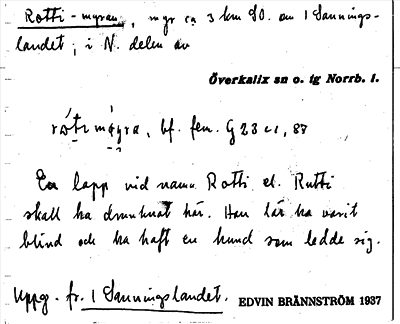 Rotti-myran, myr ca 3 km SO. om 1 Sannings-
landet, i N. delen av
Överkalix sn o. tg Norrb. l.
bf. fem. G 23 c 1, 87
En lapp vid namn Rotti el. Rutti
skall ha drunknat här. Han lär ha varit
blind och ha haft en hund som ledde sig.
Uppg. fr. 1 Sanningslandet. EDVIN BRÄNNSTRÖM 1937